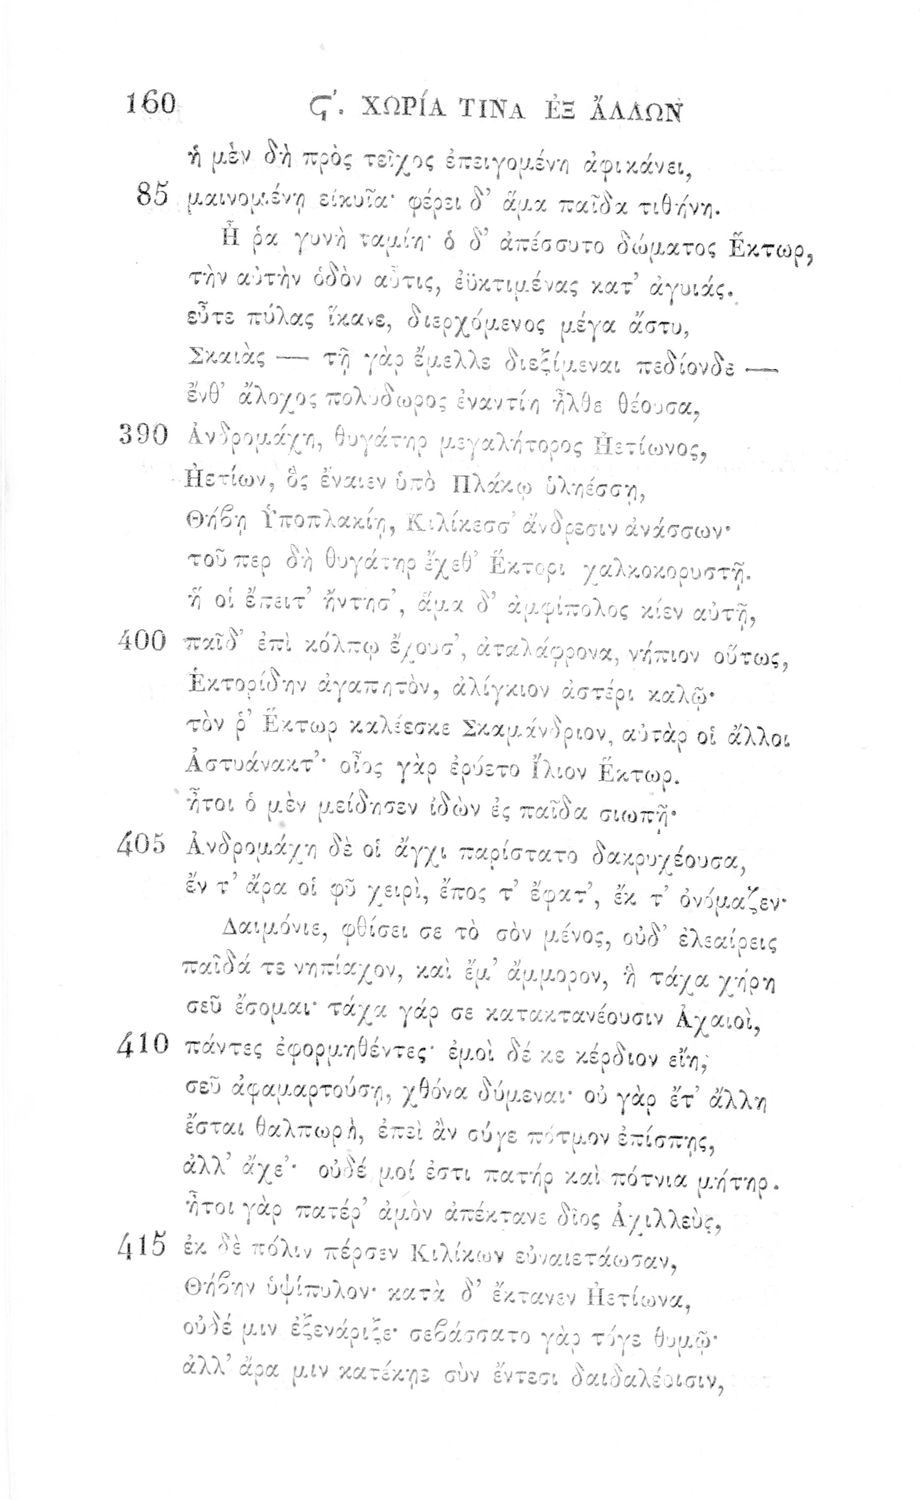 160 Ϛʹ. ΧΩΡΊΑ ΤΙΝΑ ἘΞ ἌΛΛΩΝ
ἡ μὲν δὴ πρὸς τεῖχος ἐπειγομένη ἀφικάνει,
85 μαινομένῃ εἰκυῖα· φέρει δ’ ἅμα παῖδα τιθήνη.
Ἦ ῥα γυνὴ ταμίη· ὁ δ’ ἀπέσσυτο δώματος Ἕκτωρ,
τὴν αὐτὴν ὁδὸν αὖτις, ἐϋκτιμένας κατ’ ἀγυιάς.
εὖτε πύλας ἵκανε, διερχόμενος μέγα ἄστυ,
Σκαιὰς — τῇ γὰρ ἔμελλε διεξίμεναι πεδίονδε —
ἔνθ’ ἄλοχος πολύδωρος ἐναντίη ἦλθε θέουσα,
390 Ἀνδρομάχη, θυγάτηρ μεγαλήτορος Ἠετίωνος,
Ἠετίων, ὃς ἔναιεν ὑπὸ Πλάκῳ ὑληέσσῃ,
Θήβῃ Ὑποπλακίῃ, Κιλίκεσσ’ ἄνδρεσιν ἀνάσσων·
τοῦ περ δὴ θυγάτηρ ἔχεθ’ Ἕκτορι χαλκοκορυστῇ.
ἥ οἱ ἔπειτ’ ἤντησ’, ἅμα δ’ ἀμφίπολος κίεν αὐτῇ,
400 παῖδ’ ἐπὶ κόλπῳ ἔχουσ’, ἀταλάφρονα, νήπιον οὕτως,
Ἑκτορίδην ἀγαπητὸν, ἀλίγκιον ἀστέρι καλῷ·
τὸν ῥ’ Ἕκτωρ καλέεσκε Σκαμάνδριον, αὐτὰρ οἱ ἄλλοι
Ἀστυάνακτ’· οἶος γὰρ ἐρύετο Ἴλιον Ἕκτωρ.
ἤτοι ὁ μὲν μείδησεν ἰδὼν ἐς παῖδα σιωπῇ·
405 Ἀνδρομάχη δὲ οἱ ἄγχι παρίστατο δακρυχέουσα,
ἔν τ’ ἄρα οἱ φῦ χειρὶ, ἔπος τ’ ἔφατ’, ἔκ τ’ ὀνόμαζεν·
Δαιμόνιε, φθίσει σε τὸ σὸν μένος, οὐδ’ ἐλεαίρεις
παῖδά τε νηπίαχον, καὶ ἔμ’ ἄμμορον, ἣ τάχα χήρη
σεῦ ἔσομαι· τάχα γάρ σε κατακτανέουσιν Ἀχαιοὶ,
410 πάντες ἐφορμηθέντες· ἐμοὶ δέ κε κέρδιον εἴη,
σεῦ ἀφαμαρτούσῃ, χθόνα δύμεναι· οὐ γὰρ ἔτ’ ἄλλη
ἔσται θαλπωρὴ, ἐπεὶ ἂν σύγε πότμον ἐπίσπῃς,
ἀλλ’ ἄχε’· οὐδέ μοί ἐστι πατὴρ καὶ πότνια μήτηρ.
ἤτοι γὰρ πατέρ’ ἁμὸν ἀπέκτανε δῖος Ἀχιλλεὺς,
415 ἐκ δὲ πόλιν πέρσεν Κιλίκων εὐναιετάωσαν,
Θήβην ὑψίπυλον· κατὰ δ’ ἔκτανεν Ἠετίωνα,
οὐδέ μιν ἐξενάριξε· σεβάσσατο γὰρ τόγε θυμῷ·
ἀλλ’ ἄρα μιν κατέκηε σὺν ἔντεσι δαιδαλέοισιν,